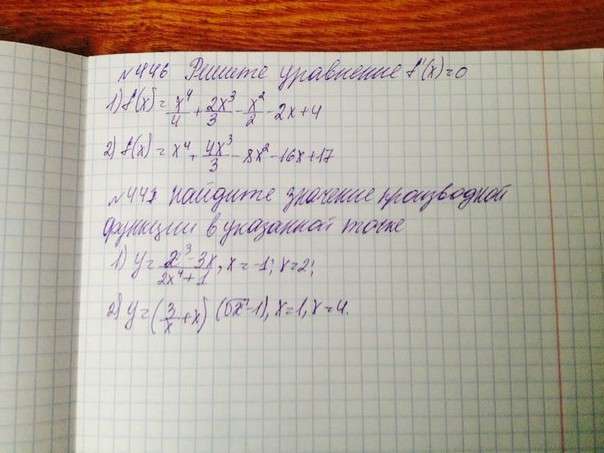 №446 Решите уравнение f'(x)=0
1) f(x)= x⁴/4 + 2x³/3 - x²/2 - 2x+4
2) f(x) = x⁴ + 4x³/3 - 8x² - 16x+17
№447 Найдите значение производной
функции в указанной точке
1) y= 2x³-3x / 2x⁴+1, x=-1; x=2;
2) y=(3/x+x) (√x-1), x=1, x=4.